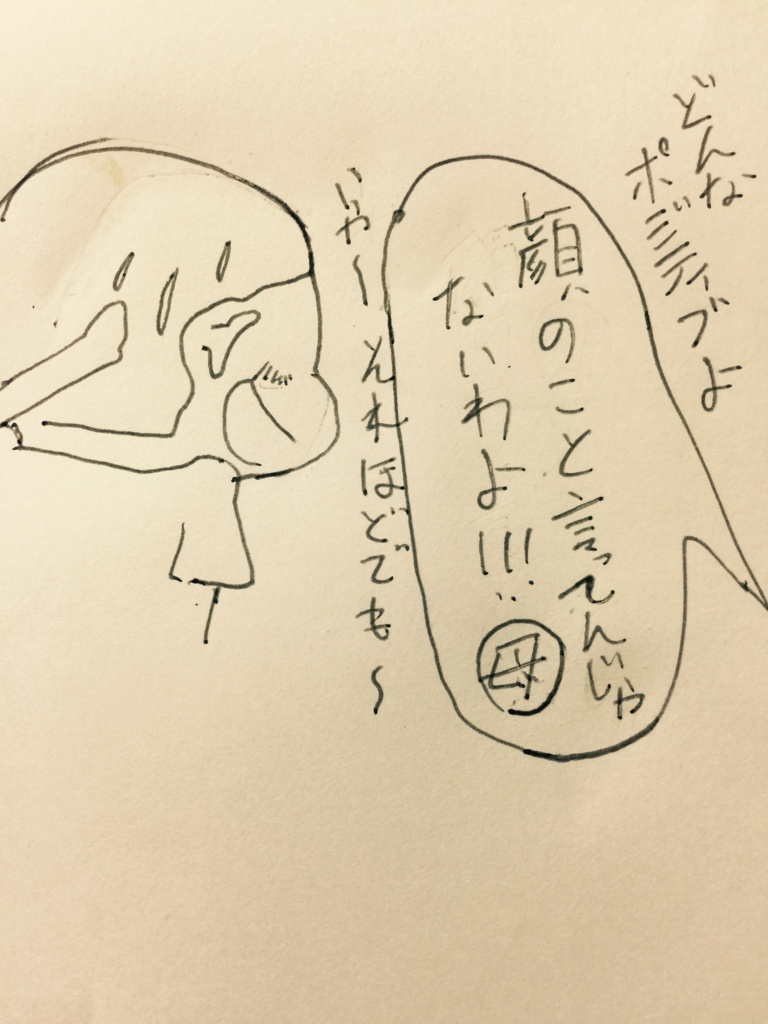 どんな
ポジティブよ
顔のこと言ってんじゃ
ないわよ!!!
母
いや〜それほどでも〜